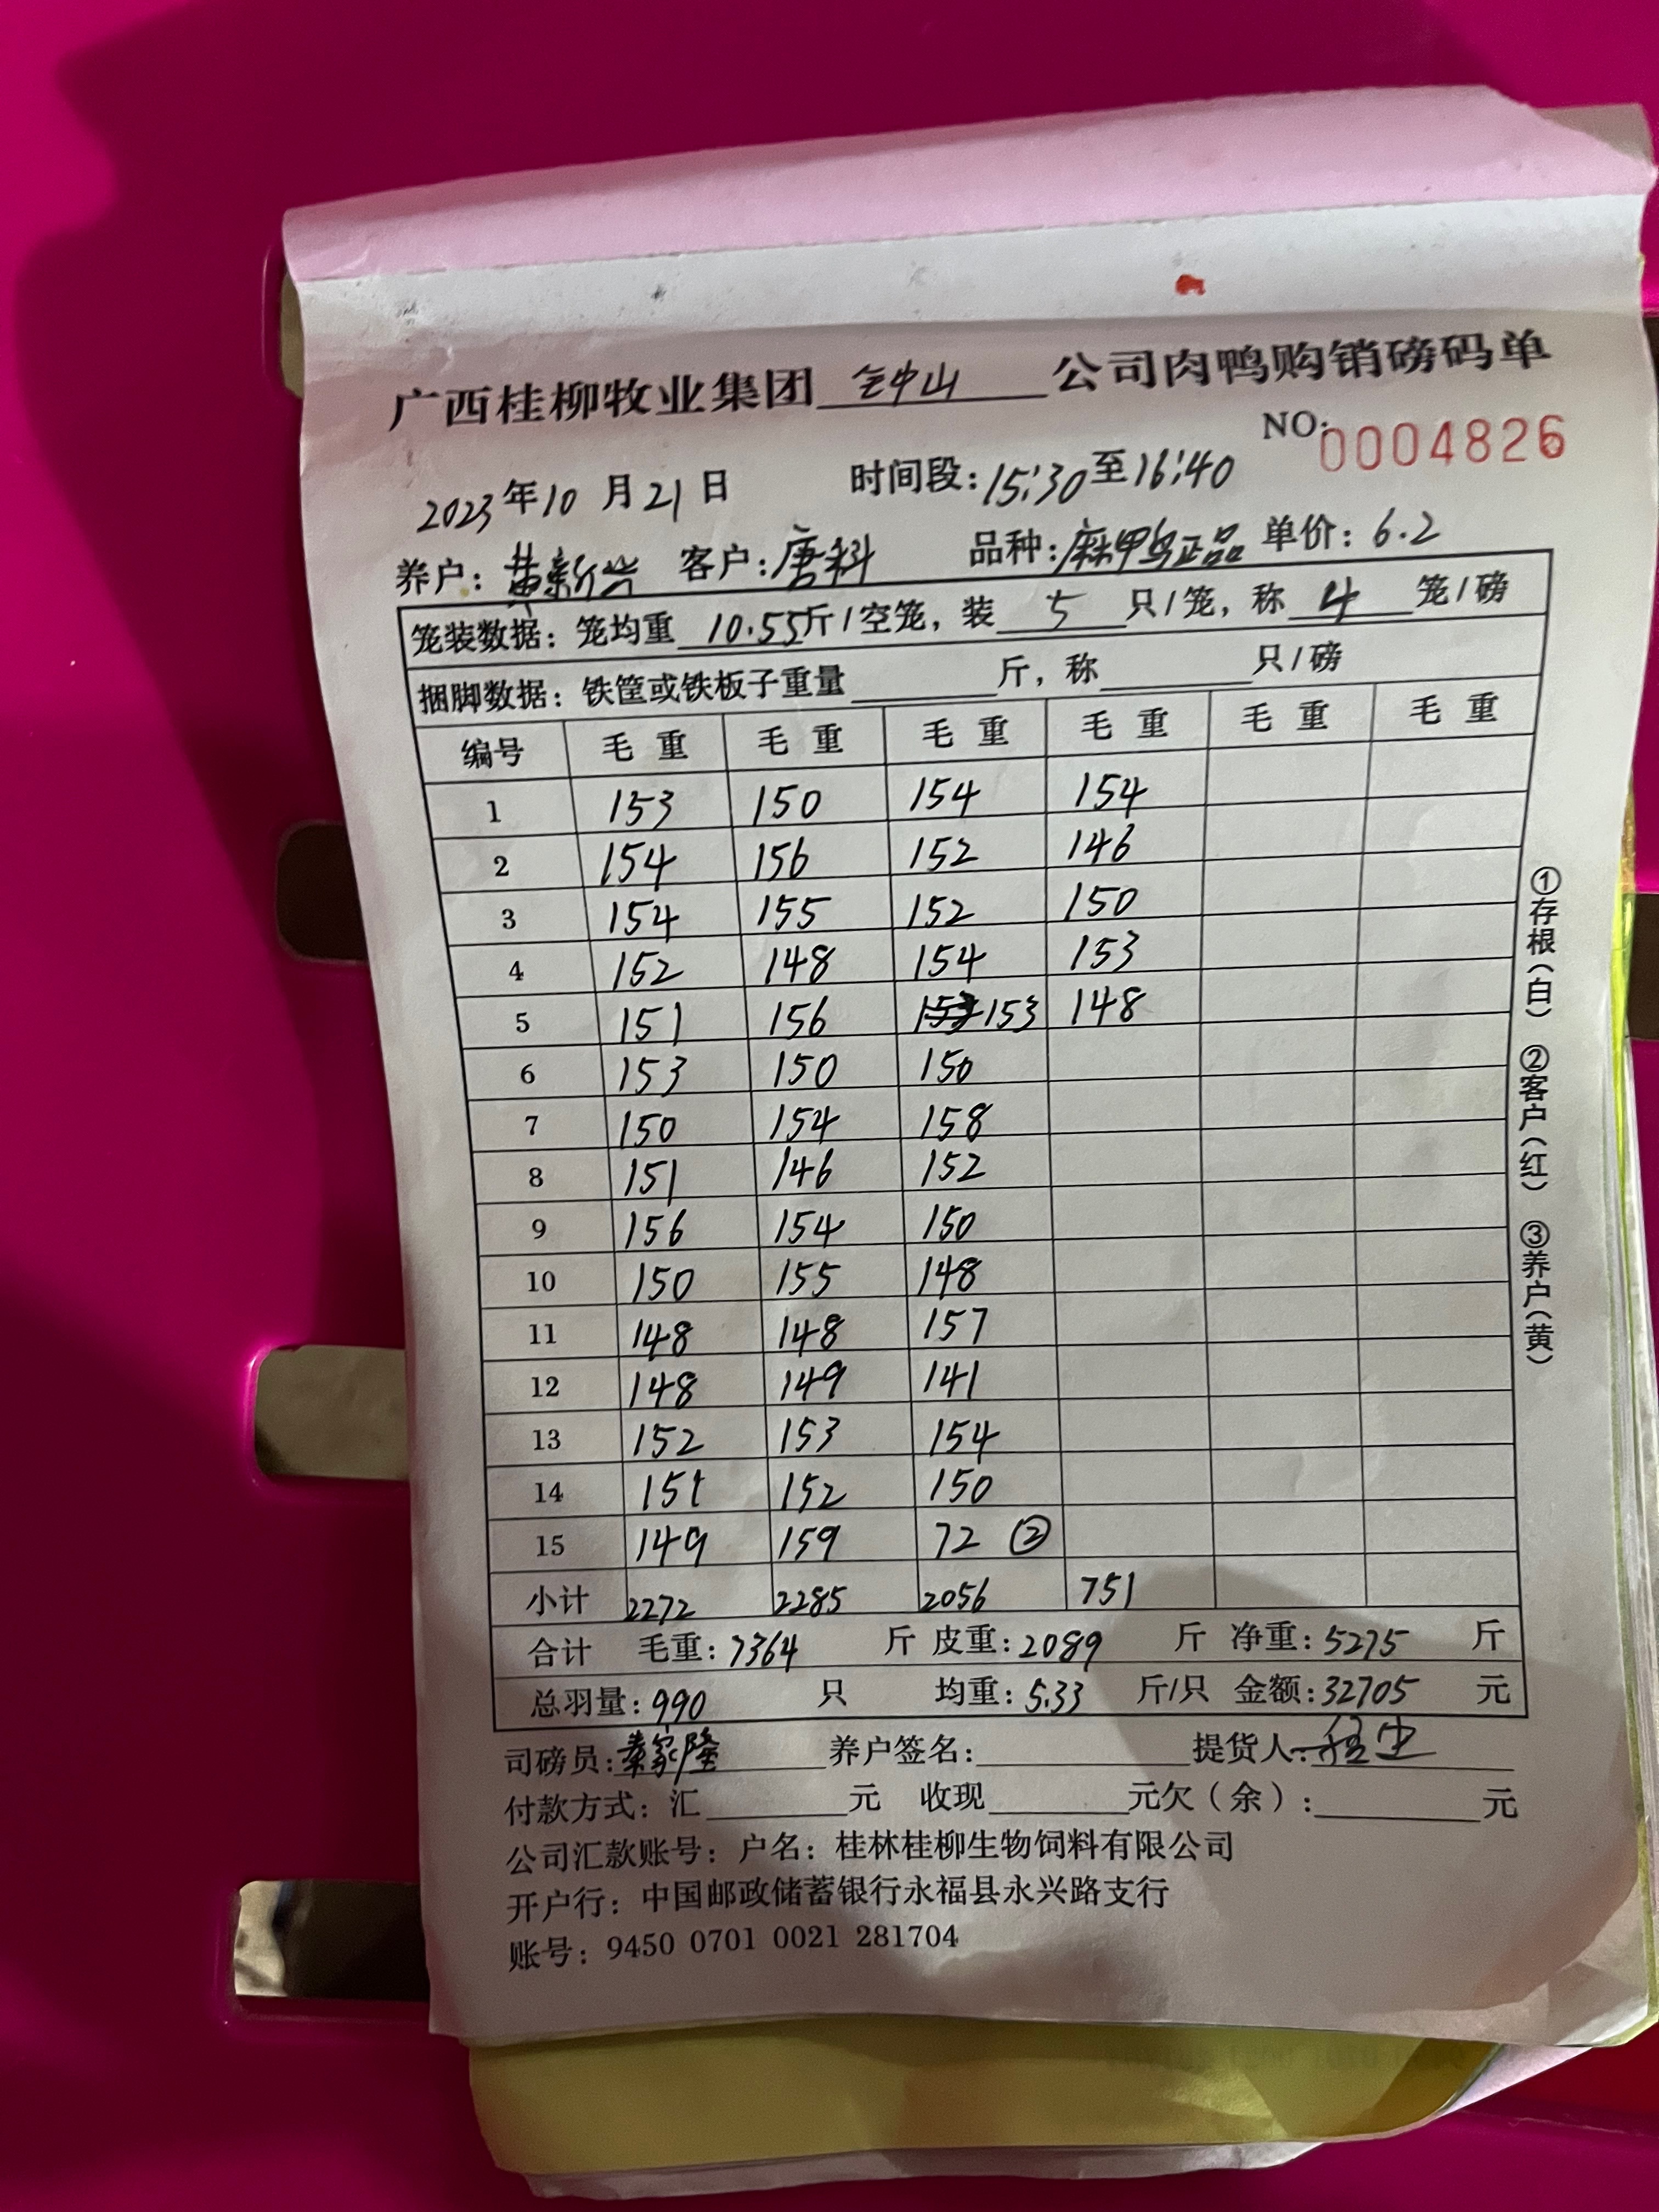 广西桂柳牧业集团 钟山 公司肉鸭购销磅码单
NO: 0004826
2023年10月21日 时间段:15:30至16:40
养户: 黄新兴 客户:唐科 品种:麻鸭正品 单价: 6.2
笼装数据: 笼均重 10.55斤/空笼, 装 5 只/笼, 称 4 笼/磅
捆脚数据: 铁筐或铁板子重量 斤, 称 只/磅
编号 毛重 毛重 毛重 毛重 毛重 毛重
1 153 150 154 154
2 154 156 152 146
3 154 155 152 150
4 152 148 154 153
5 151 156 153 148
6 153 150 150
7 150 154 158
8 151 146 152
9 156 154 150
10 150 155 148
11 148 148 157
12 148 149 141
13 152 153 154
14 151 152 150
15 149 159 72 ②
小计 2272 2285 2056 751
合计 毛重: 7364 斤 皮重: 2089 斤 净重: 5275 斤
总羽量: 990 只 均重: 5.33 斤/只 金额: 32705 元
司磅员: 秦家隆 养户签名: 提货人:
付款方式: 汇 元 收现 元欠(余): 元
公司汇款账号: 户名: 桂林桂柳生物饲料有限公司
开户行: 中国邮政储蓄银行永福县永兴路支行
账号: 9450 0701 0021 281704
①存根(白) ②客户(红) ③养户(黄)